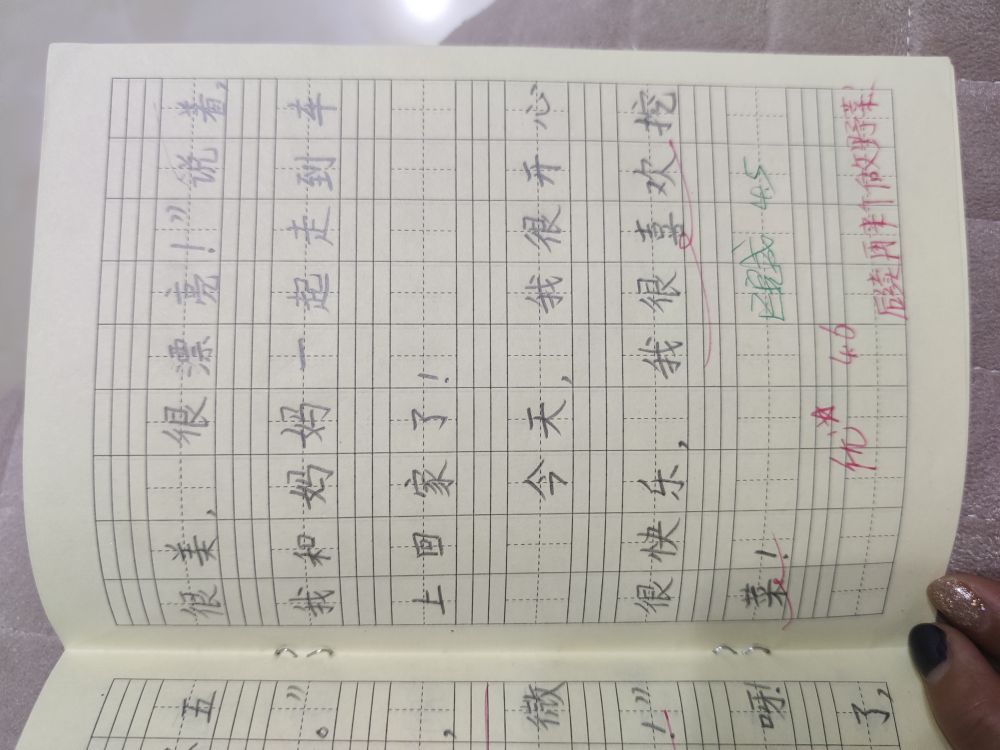 五
。”
，
微
！”
呀！
了，
很美，很漂亮！”说着，
我和妈妈一起走到车
上回家了！
今天，我很开心
很快乐，我很喜欢挖
菜！
4.5
优☆ 4.6
后续 做野菜